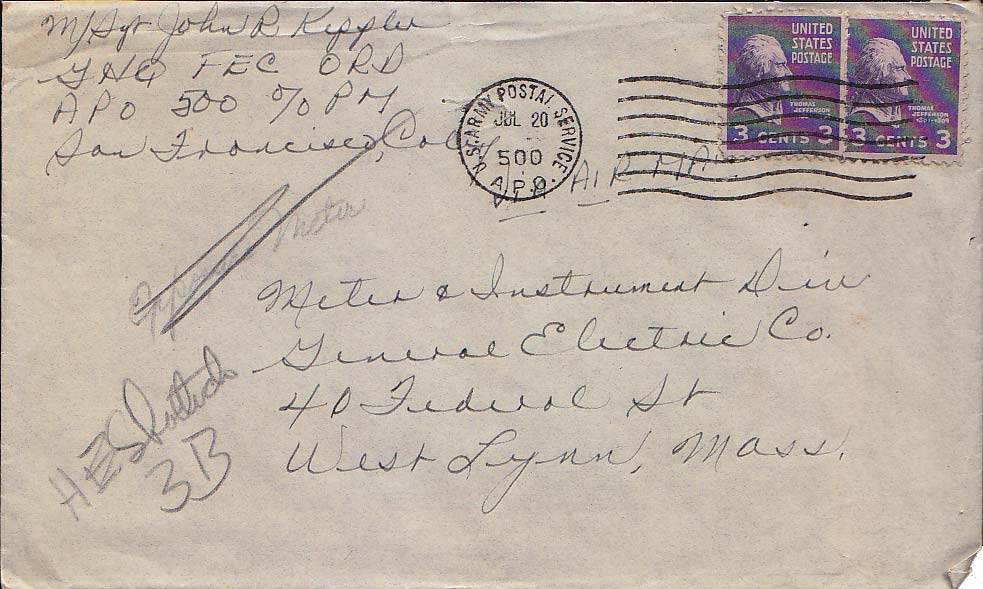 M/Sgt John R Keppler
GHQ FEC ORD
APO 500 % PM
San Francisco, Cal
U.S. ARMY POSTAL SERVICE
JUL 20
500
A.P.O.
UNITED STATES POSTAGE
THOMAS JEFFERSON
3 CENTS 3
UNITED STATES POSTAGE
THOMAS JEFFERSON
3 CENTS 3
VIA AIR MAIL
Meter
Meter & Instrument Div
General Electric Co.
40 Federal St
West Lynn, Mass.
H E
3B